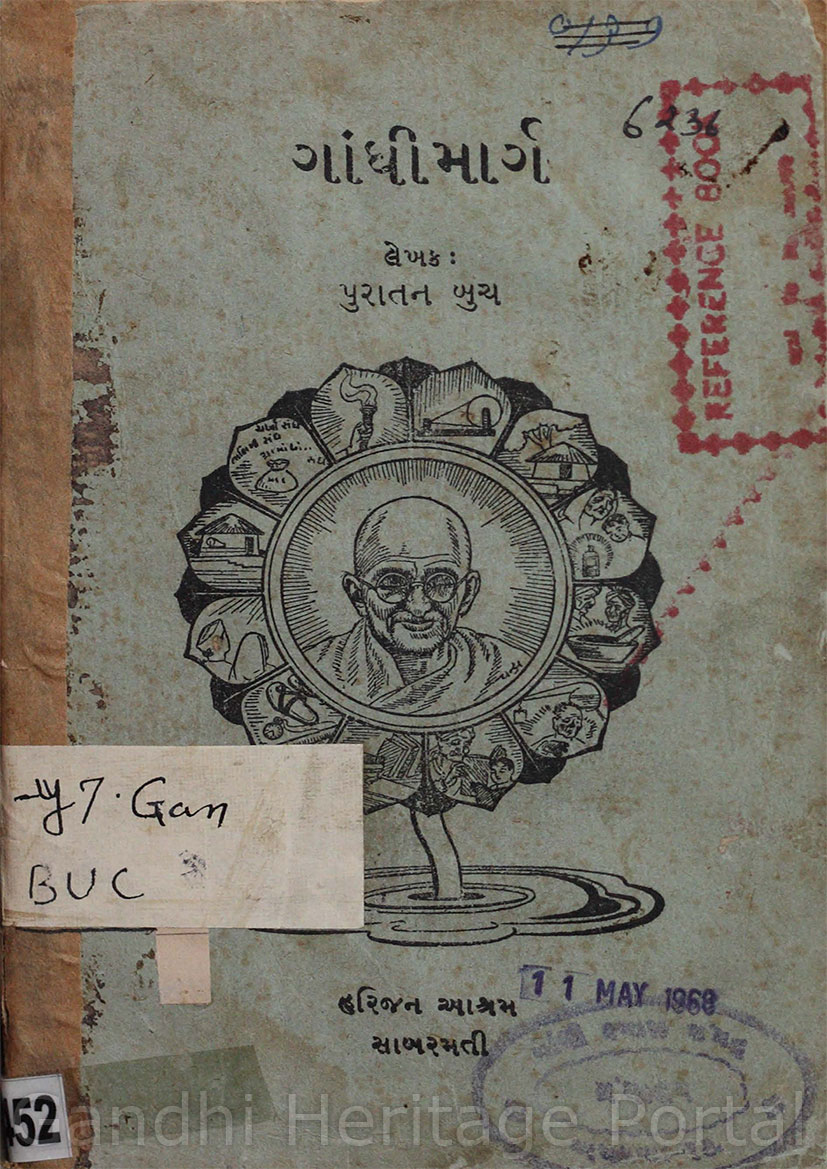 6236
ગાંધીમાર્ગ
REFERENCE BOO
લેખક :
પુરાતન બુચ
ચર્ખા સંઘ
સંઘ
7. Gan
BUC
હરિજન આશ્રમ
સાબરમતી
11 MAY 1968
452
andhi Heritage Portal